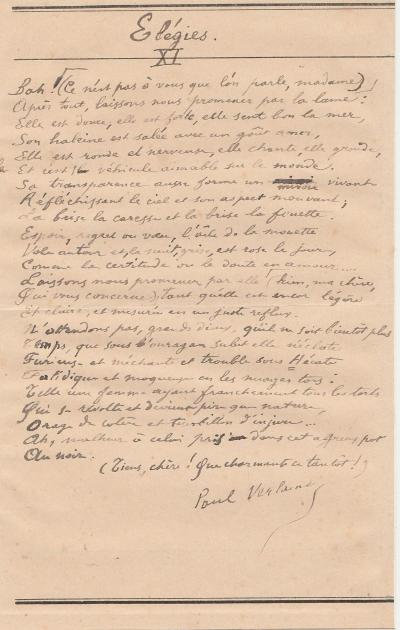 Elégies.
XI
Bah! (Ce n'est pas à vous que l'on parle, madame)!
Après tout, laissons nous promener par la lame:
Elle est douce, elle est forte, elle sent bon la mer,
Son haleine est salée avec un goût amer,
Elle est ronde et nerveuse, elle chante, elle gronde,
Et c'est le véhicule aimable sur le monde.
Sa transparence aussi forme un miroir vivant
Réfléchissant le ciel et son aspect mouvant;
La brise la caresse et la brise la fouette.
Espoir, regret ou vœu, l'aile de la mouette
Vole autour et la nuit, grise, est rose le jour,
Comme la certitude ou le doute en amour....
Laissons nous promener par elle (hum, ma chère,
Qui vous concerne), tant qu'elle est encor légère
Et claire, et mesurée en un juste reflux.
N'attendons pas, grands dieux, qu'il ne soit bientôt plus
Temps, que sous l'ouragan subit elle n'éclate
Furieuse et méchante et trouble sous Hécate
Fatidique et moqueuse en les nuages tors.
Telle une femme ayant franchement tous les torts
Qui se révolte et devient pire que nature,
Orage de colère et tourbillon d'injure...
Ah, malheur à celui pris dans cet affreux pot
Au noir.
(Tiens, chère! Que charmante ce tantôt!)
Paul Verlaine